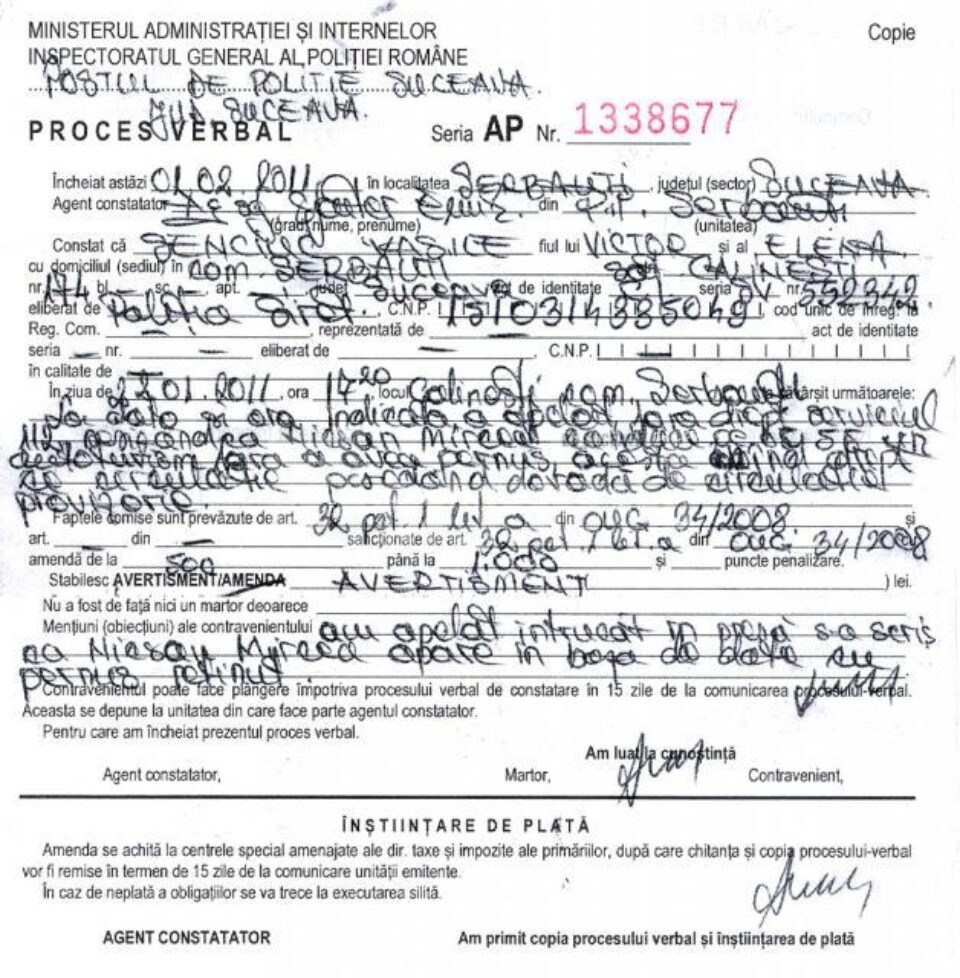 MINISTERUL ADMINISTRAȚIEI ȘI INTERNELOR Copie
INSPECTORATUL GENERAL AL POLIȚIEI ROMÂNE
POSTUL DE POLITIE SUCEAVA
JUD. SUCEAVA.
PROCES VERBAL Seria AP Nr. 1338677
Încheiat astăzi 01.02.2011 în localitatea SERBAUTI, județul (sector) SUCEAVA
Agent constatator din Serbauti
(grad, nume, prenume) (unitatea)
Constat că VASILE fiul lui VICTOR și al ELENA
cu domiciliul (sediul) în com. SERBAUTI sat CALINESTI
nr. 174 bl. sc. apt. județ Suceava act de identitate seria SV nr. 552342
eliberat de Politia Siret C.N.P. cod unic de înreg. la
Reg. Com. , reprezentată de act de identitate
seria nr. eliberat de C.N.P.
în calitate de
În ziua de 01.2011, ora 17 20 locul Calinesti com. Serbauti a săvârșit următoarele:
La data si ora indicata a apelat fara drept serviciul
112 Niesan Mircea conduce pe DC 55 un
autoturism fara a avea permis, acesta drept
de circulatie posedand dovada de circulatie
provizorie.
Faptele comise sunt prevăzute de art. 32 pct. 1 lit a din OUG 34/2008 și
art. din sancționate de art. 32 pct. 1 lit. a din OUG 34/2008
amendă de la 500 până la 1.000 și puncte penalizare.
Stabilesc AVERTISMENT/AMENDA AVERTISMENT ) lei.
Nu a fost de față nici un martor deoarece
Mențiuni (obiecțiuni) ale contravenientului am apelat intrucat in presa s-a scris
ca Niesan Myrcea apare in baza de date cu
permis retinut.
Contravenientul poate face plângere împotriva procesului verbal de constatare în 15 zile de la comunicarea procesului-verbal.
Aceasta se depune la unitatea din care face parte agentul constatator.
Pentru care am încheiat prezentul proces verbal.
Am luat la cunoștință
Agent constatator, Martor, Contravenient,
ÎNȘTIINȚARE DE PLATĂ
Amenda se achită la centrele special amenajate ale dir. taxe și impozite ale primăriilor, după care chitanța și copia procesului-verbal
vor fi remise în termen de 15 zile de la comunicare unității emitente.
În caz de neplată a obligațiilor se va trece la executarea silită.
AGENT CONSTATATOR Am primit copia procesului verbal și înștiințarea de plată